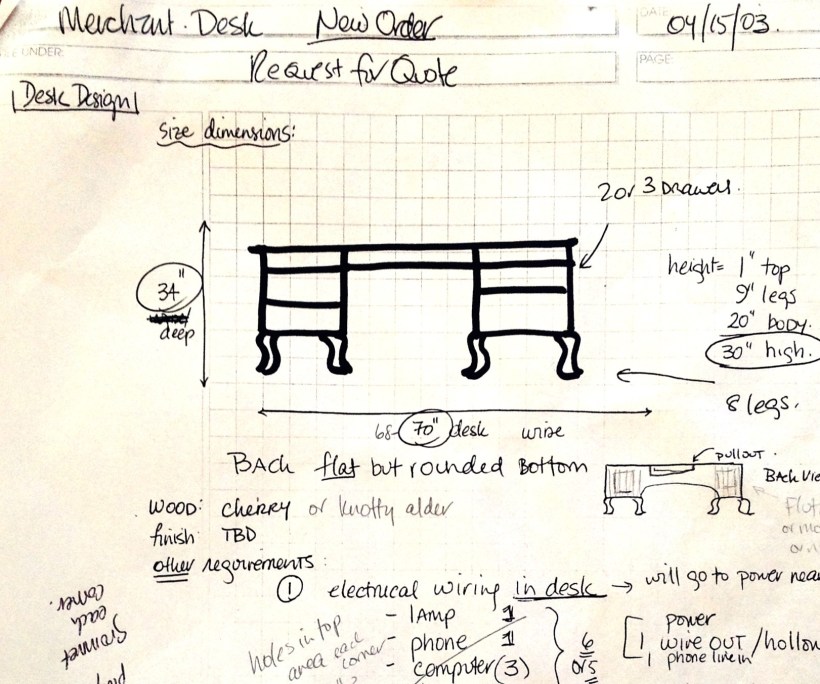 Merchant. Desk New Order 04/15/03.
DATE
UNDER
Request for Quote
PAGE
Desk Design
Size dimensions:
2 or 3 Drawers.
34"
deep
height= 1" top
9" legs
20" body.
30" high.
8 legs.
68- 70" desk wise
BACk flat but rounded Bottom
pullout.
BAck Vie
WOOD: cherry or knotty alder
finish: TBD
other requirements:
① electrical wiring in desk → will go to power nea
- lAmp 1
- phone 1
- computer (3)
6
or 5
power
1 wire OUT / hollow
1 phone line in
holes in top
area each
corner
grommet
each
corner.